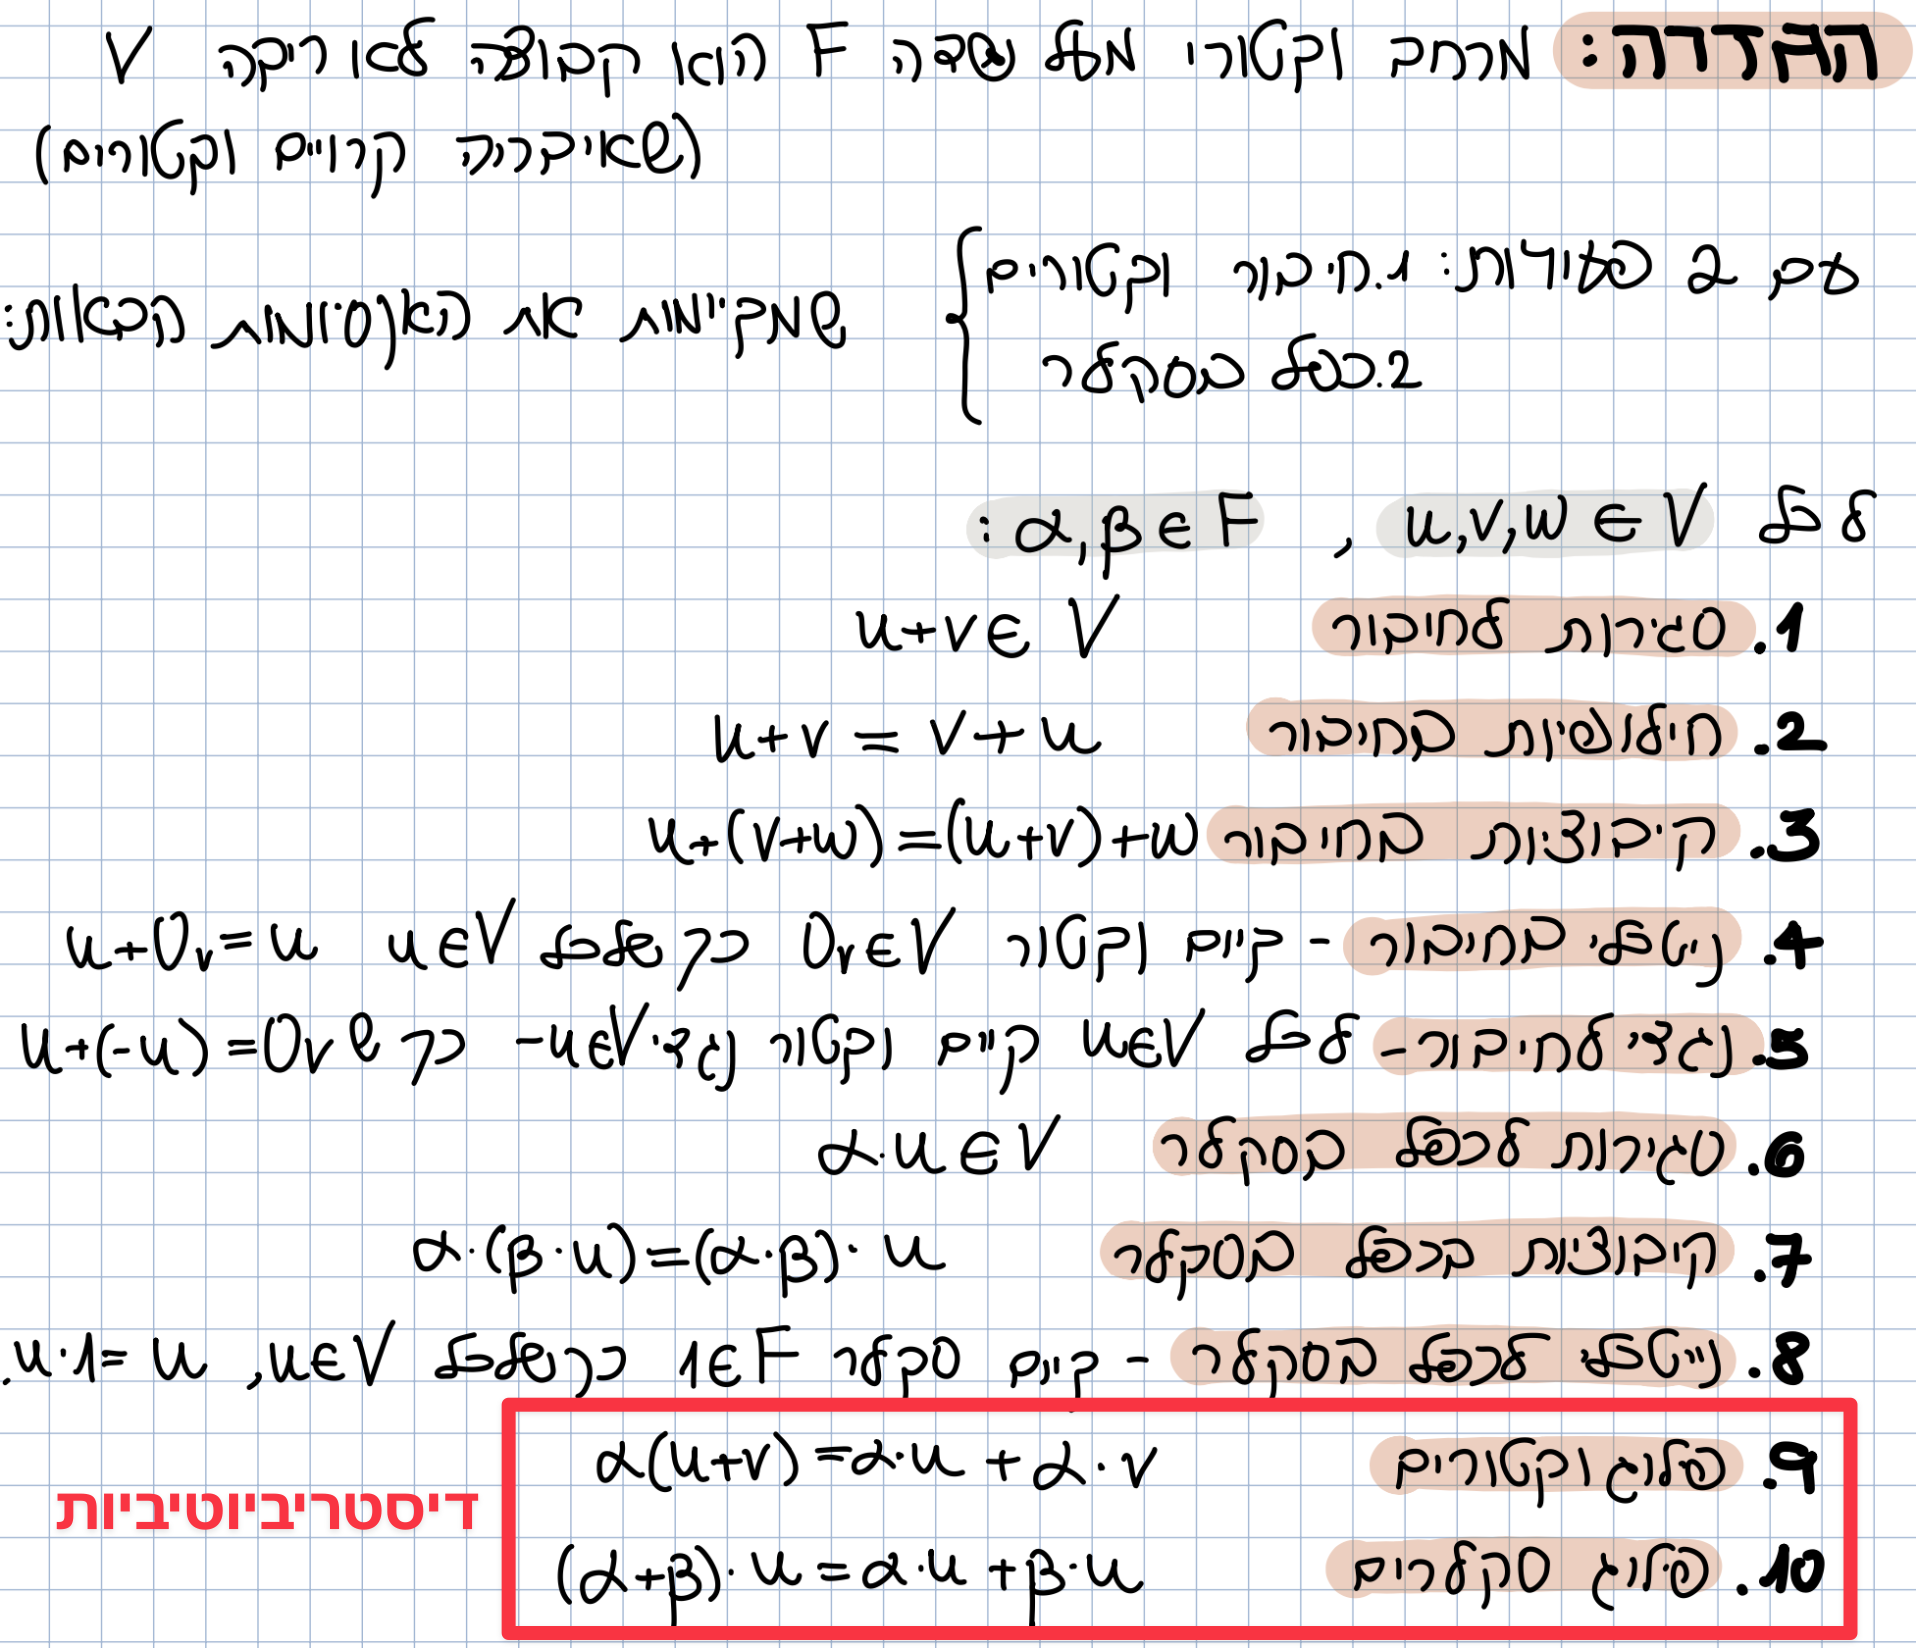 הגדרה: מרחב וקטורי מעל שדה F הוא קבוצה לא ריקה V
(שאיבריה קרויים וקטורים)
עם 2 פעולות: 1.חיבור וקטורים
2.כפל בסקלר
שמקיימות את האקסיומות הבאות:
לכל u,v,w ∈ V , α,β ∈ F :
1. סגירות לחיבור u+v ∈ V
2. חילופיות בחיבור u+v = v+u
3. קיבוציות בחיבור u+(v+w)=(u+v)+w
4. ניטרלי בחיבור - קיים וקטור 0v∈V כך שלכל u∈V u+0v=u
5. נגדי לחיבור - לכל u∈V קיים וקטור נגדי -u∈V כך ש u+(-u)=0v
6. סגירות לכפל בסקלר α·u∈V
7. קיבוציות בכפל בסקלר α·(β·u)=(α·β)·u
8. נייטרלי לכפל בסקלר - קיים סקלר 1∈F כך שלכל u∈V, u·1=u.
9. פלוג וקטורים α(u+v)=α·u+α·v
דיסטריביוטיביות
10. פילוג סקלרים (α+β)·u=α·u+β·u